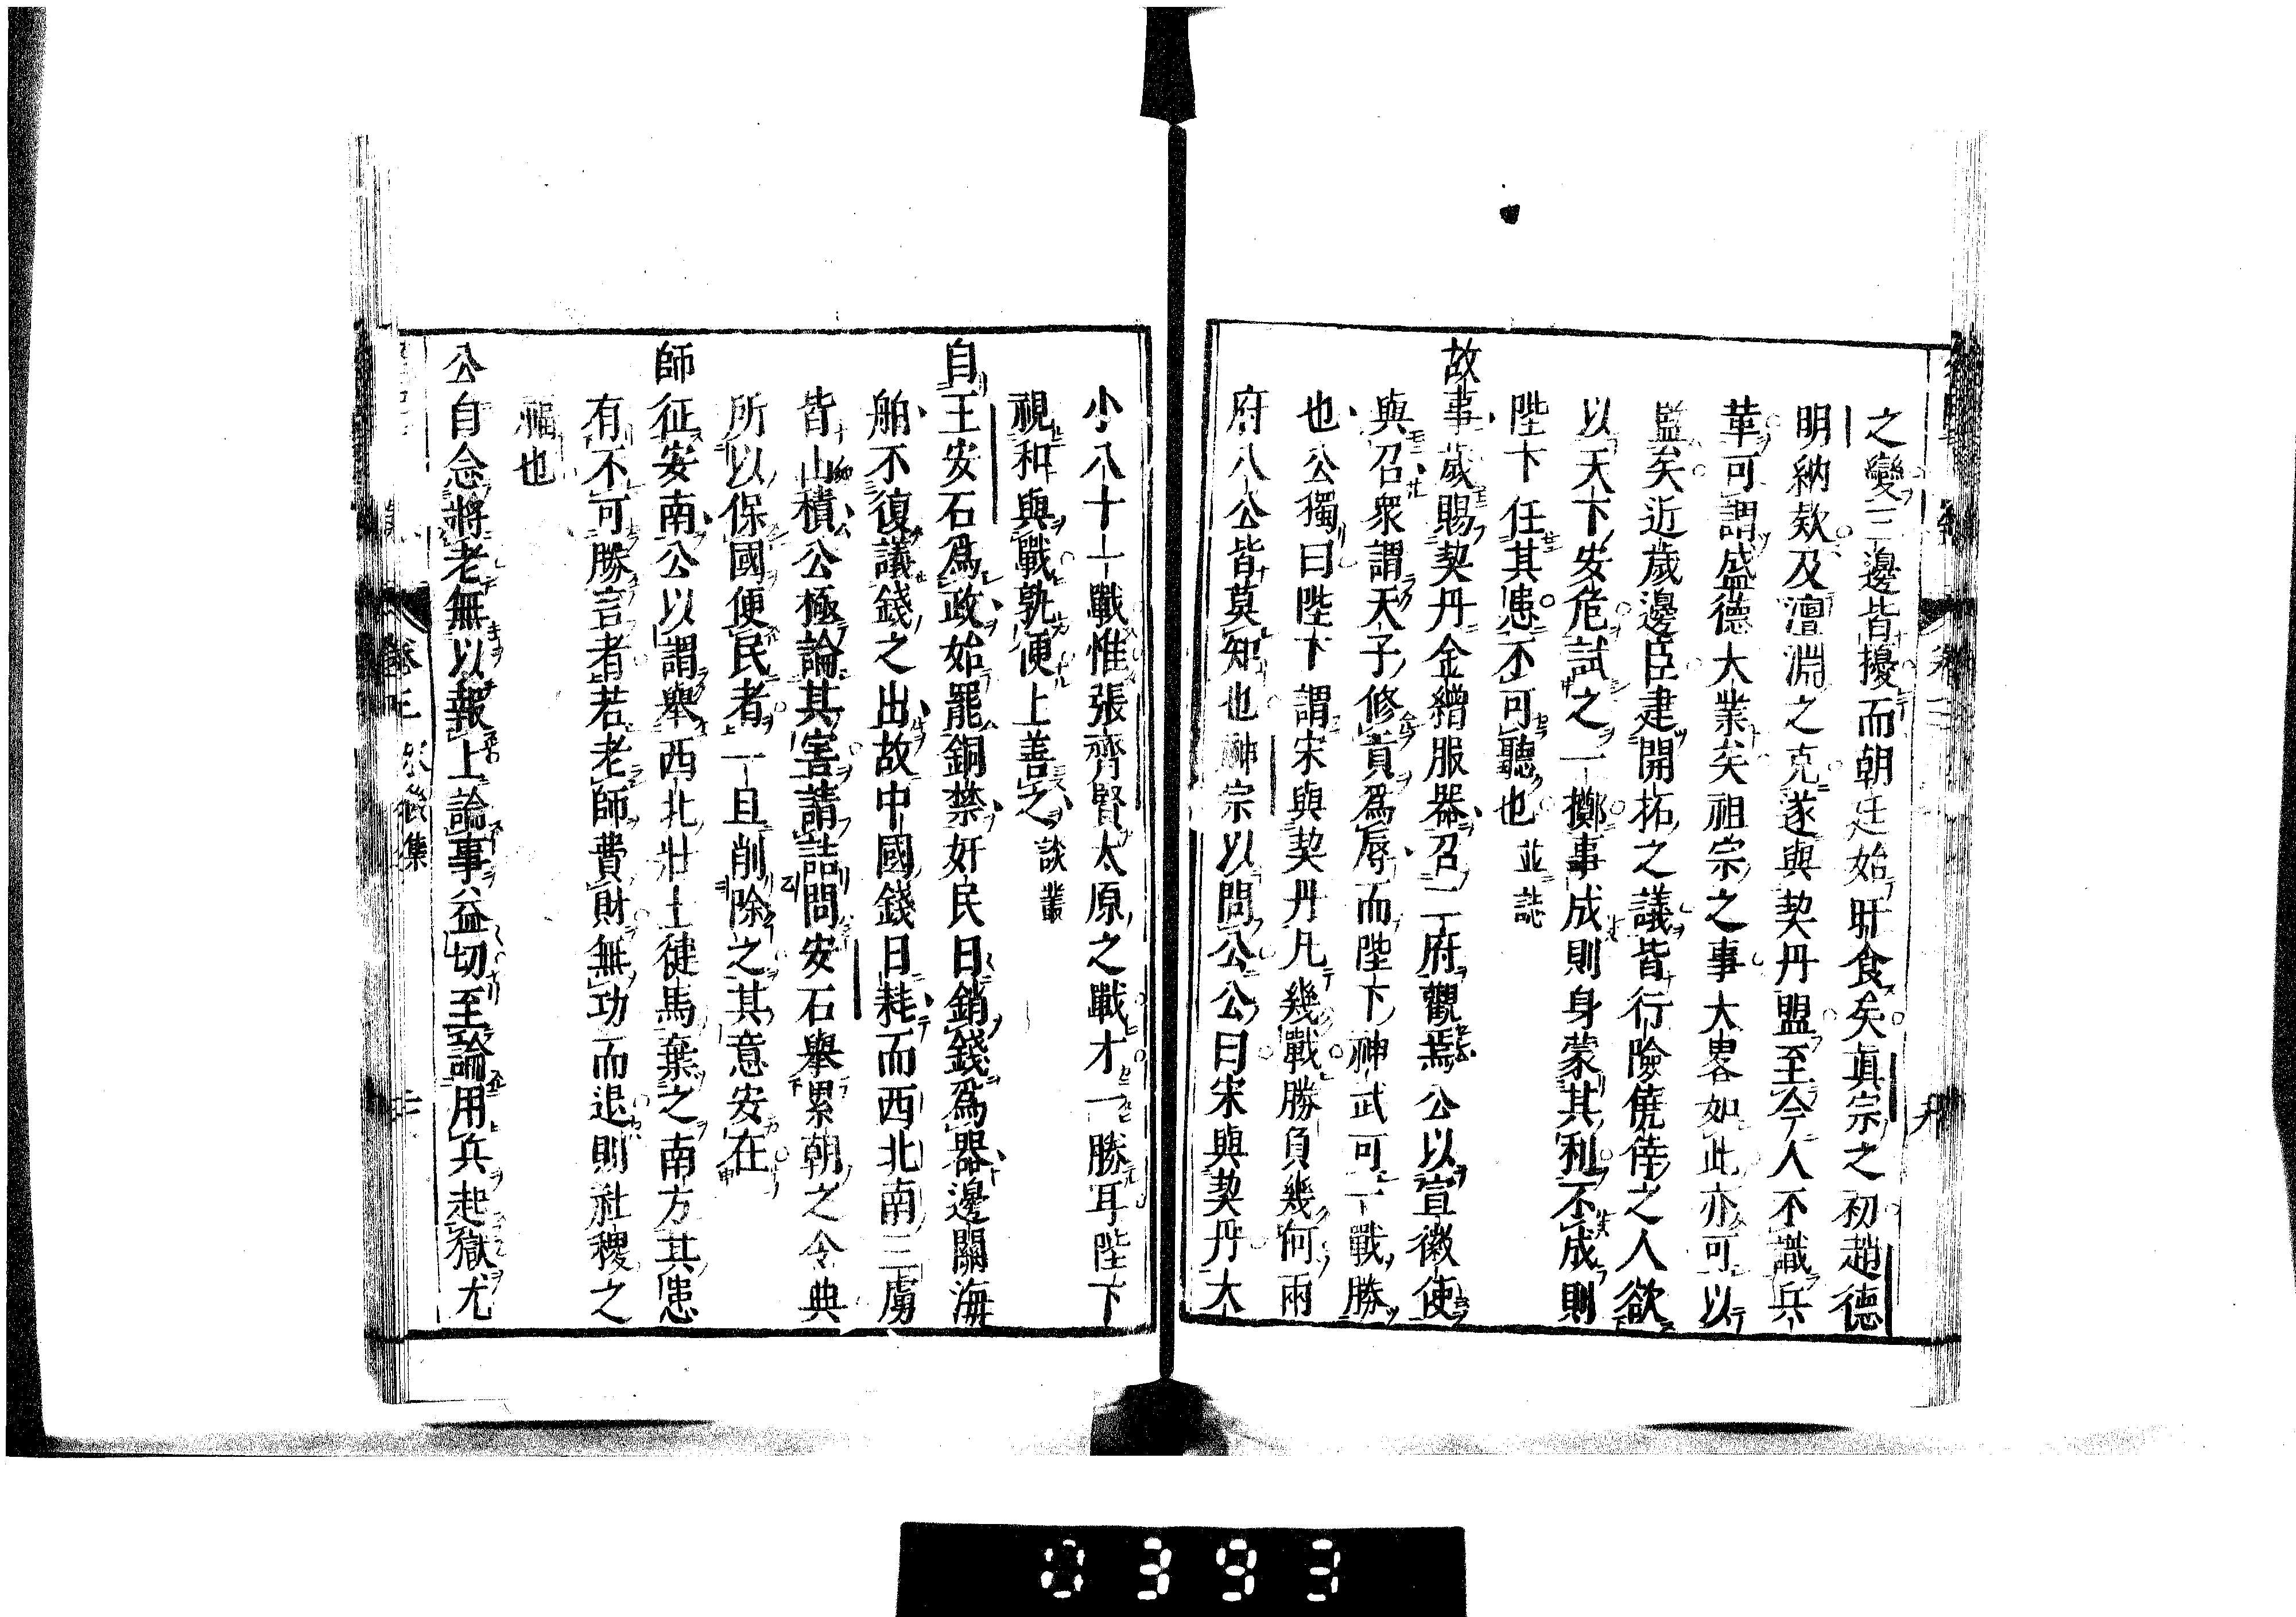 之變三邊皆擾而朝廷始旰食矣眞宗之初趙德
明納欵及澶淵之克遂與契丹盟至今人不識兵
革可謂盛德大業矣祖宗之事大畧如此亦可以
監矣近歲邊臣建開拓之議皆行險僥倖之人欲
以天下安危試之一擲事成則身蒙其利不成則
陛下任其患不可聽也 並誌
故事歲賜契丹金繒服器召二府觀焉公以宣徽使
與召衆謂天子修貢爲辱而陛下神武可一戰勝
也公獨曰陛下謂宋與契丹凡幾戰勝負幾何兩
府八公皆莫知也神宗以問公公曰宋與契丹大
小八十一戰惟張齊賢太原之戰才一勝耳陛下
視和與戰孰便上善之 談叢
自王安石爲政始罷銅禁奸民日銷錢爲器邊關海
舶不復議錢之出故中國錢日耗而西北南三虜
皆山積公極論其害請詰問安石舉累朝之令典
所以保國便民者一旦削除之其意安在
師征安南公以謂舉西北壯士徤馬棄之南方其患
有不可勝言者若老師費財無功而退則社稷之
福也
公自念將老無以報上論事益切至論用兵起獄尤
卷三
0393